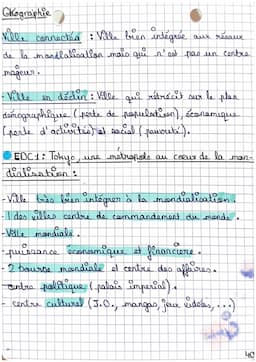 Géographie
Ville connectée : Ville bien intégrée aux réseaux
de la mondialisation mais qui n'est pas un centre
majeur.
- Ville en déclin : Ville qui rétrécit sur le plan
démographique (perte de population), économique
(perte d'activités) et social (pauvreté).
EDC1 : Tokyo, une métropole au cœur de la mon-
dialisation :
- Ville très bien intégrer à la mondialisation.
1 des villes centre de commandement du monde.
- Ville mondiale.
- puissance économique et financière.
- 2 bourse mondiale et centre des affaires.
- centre politique (palais impérial).
- centre culturel (J.O., mangas, jeux vidéos, ...)